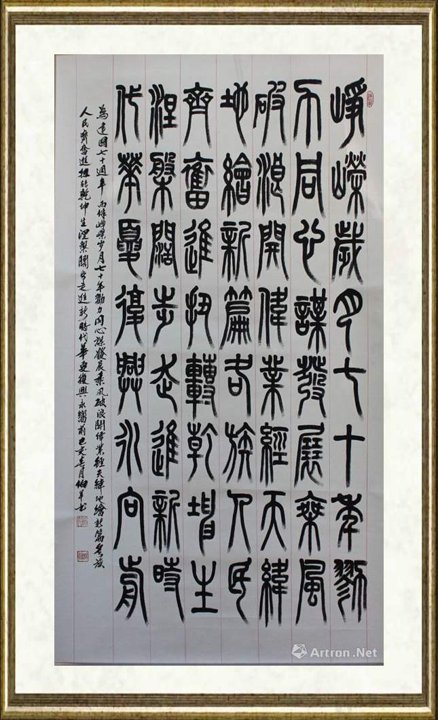 崢嶸歲月七十年勠
力同心謀發展乘風
破浪開偉業經天緯
地繪新篇各族人民
齊奮進扭轉乾坤生
涅槃闊步走進新時
代華夏復興永向前
為建國七十週年而作崢嶸岁月七十年勠力同心謀發展乘風破浪開偉業經天緯地繪新篇各族
人民齊奮進扭轉乾坤生涅槃闊步走進新時代華夏復興永嚮前己亥春月
Artron.Net